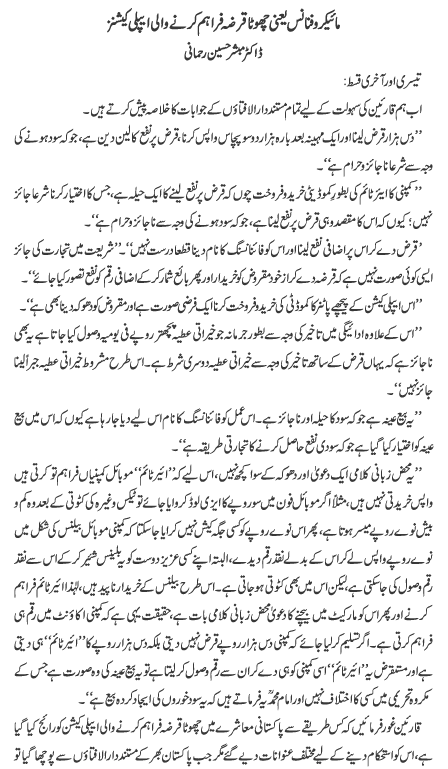 مائیکرو فنانس یعنی چھوٹا قرضہ فراہم کرنے والی ایپلی کیشنز
ڈاکٹر مبشر حسین رحمانی
تیسری اور آخری قسط:
اب ہم قارئین کی سہولت کے لیے تمام مستند دارالافتاؤں کے جوابات کا خلاصہ پیش کرتے ہیں۔
”دس ہزار قرض لینا اور ایک مہینہ بعد بارہ ہزار دو سو پچاس واپس کرنا، قرض پر نفع کا لین دین ہے، جو کہ سود ہونے کی
وجہ سے شرعا ناجائز و حرام ہے“۔
”کمپنی کا ایئر ٹائم کی بطور کموڈیٹی خرید و فروخت چوں کہ قرض پر نفع لینے کا ایک حیلہ ہے، جس کا اختیار کرنا شرعا جائز
نہیں؛ کیوں کہ اس کا مقصد وہی قرض پر نفع لینا ہے، جو کہ سود ہونے کی وجہ سے ناجائز و حرام ہے“۔
”قرض دے کر اس پر اضافی نفع لینا اور اس کو فائنانسنگ کا نام دینا قطعا درست نہیں“۔ ”شریعت میں تجارت کی جائز
ایسی کوئی صورت نہیں ہے کہ قرضہ دے کر از خود مقروض کو خریدار اور پھر بائع شمار کرکے اضافی رقم کو نفع تصور کیا جائے“۔
”اس ایپلی کیشن کے پیچھے پارٹنر کا کموڈٹی کی فروخت کرنا ایک فرضی صورت ہے اور مقروض کو دھوکہ دینا بھی ہے“۔
”اس کے علاوہ ادائیگی میں تاخیر کی وجہ سے بطور جرمانہ جو خیراتی عطیہ پچھتر روپے فی یومیہ وصول کیا جاتا ہے یہ بھی
ناجائز ہے کہ یہاں قرض کے ساتھ تاخیر کی وجہ سے خیراتی عطیہ دوسری شرط ہے۔ اس طرح مشروط خیراتی عطیہ جبراً لینا
جائز نہیں“۔
”یہ بیع عینہ ہے جو کہ سود کا حیلہ اور ناجائز ہے۔ اس عمل کو فائنانسنگ کا نام اس لیے دیا جارہا ہے کیوں کہ اس میں بیع
عینہ کو اختیار کیا گیا ہے جو کہ سودی نفع حاصل کرنے کا تجارتی طریقہ ہے“۔
”یہ محض زبانی کلامی ایک دعویٰ اور دھوکہ کے سوا کچھ نہیں، اس لیے کہ ”ائیر ٹائم“ موبائل کمپنیاں فراہم تو کرتی ہیں
واپس خریدتی نہیں ہیں، مثلاً اگر موبائل فون میں سو روپے کا ایزی لوڈ کروایا جائے تو ٹیکس وغیرہ کی کٹوتی کے بعد وہ کم و
بیش نوے روپے میسر ہوتا ہے، پھر اس نوے روپے کو کسی جگہ کیش نہیں کرایا جاسکتا کہ کمپنی موبائل بیلنس کی شکل میں
نوے روپے واپس لے کر اس کے بدلے نقد رقم دیدے، البتہ اپنے کسی عزیز دوست کو یہ بیلنس شیئر کرکے اس سے نقد
رقم وصول کی جاسکتی ہے، لیکن اس میں بھی کٹوتی ہوجاتی ہے۔ اس طرح بیلنس کے خریدار ناپید ہیں، لہٰذا ائیر ٹائم فراہم
کرنے اور پھر اس کو مارکیٹ میں بیچنے کا دعویٰ محض زبانی کلامی بات ہے، حقیقت یہی ہے کہ کمپنی اکاؤنٹ میں رقم ہی
فراہم کرتی ہے۔ اگر تسلیم کرلیا جائے کہ کمپنی دس ہزار روپے قرض نہیں دیتی بلکہ دس ہزار روپے کا ”ائیر ٹائم“ ہی دیتی
ہے اور مستقرض یہ ”ائیر ٹائم“ اسی کمپنی کو ہی دے کر ان سے رقم وصول کرلیتا ہے تو یہ بیع عینہ کی وہ صورت ہے جس کے
مکروہ تحریمی میں کسی کا اختلاف نہیں اور امام محمدؒ یہ فرماتے ہیں کہ یہ سود خوروں کی ایجاد کردہ بیع ہے“۔
قارئین غور فرمائیں کہ کس طریقے سے پاکستانی معاشرے میں چھوٹا قرضہ فراہم کرنے والی ایپلی کیشن کو رائج کیا گیا
ہے، اس کو استحکام دینے کے لیے مختلف عنوانات دیے گئے مگر جب پاکستان بھر کے مستند دارالافتاؤں سے پوچھا گیا تو